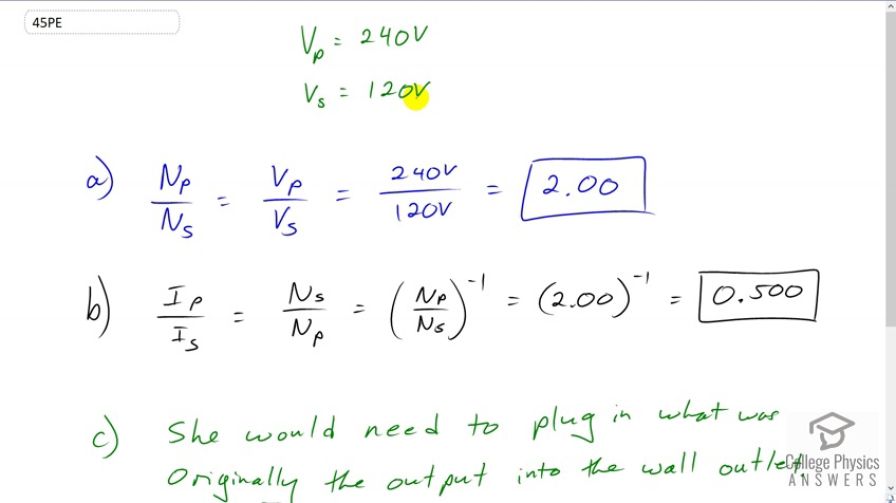 45PE
Vp = 240V
Vs = 120V
a) Np/Ns = Vp/Vs = 240V/120V = 2.00
b) Ip/Is = Ns/Np = (Np/Ns)^-1 = (2.00)^-1 = 0.500
c) She would need to plug in what was
originally the output into the wall outlet.
College Physics
ANSWERS